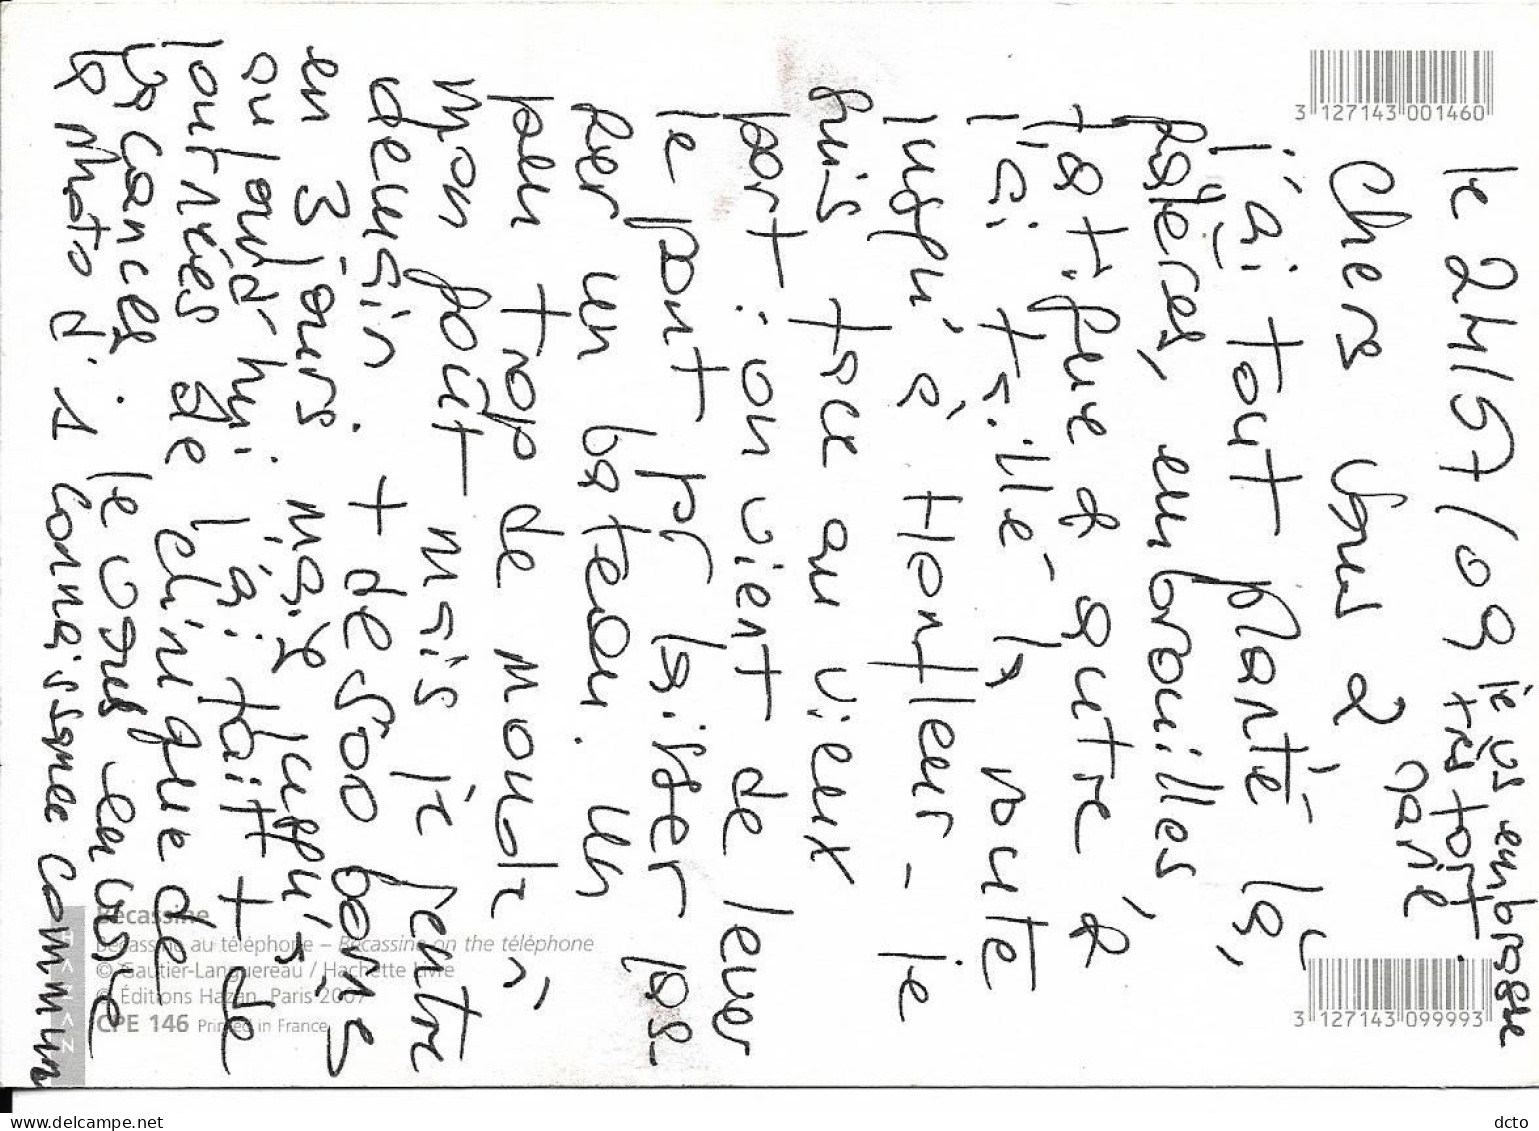 le 24/07/09
Chers vous 2
j'ai tout planté là,
galères, embrouilles,
fatigue & autre &
j'ai taillé la route
jusqu'à Honfleur - je
suis face au vieux
port : on vient de lever
le pont pr laisser pas-
ser un bateau. Un
peu trop de monde à
mon goût mais je rentre
demain. + de 500 bornes
en 3 jours. mais jusqu'à
aujourd'hui j'ai fait + de
journées de clinique que de
vacances. Je vous envoie
la photo d'1 connaissance commune
je vs embrasse
très fort.
Marie
3 127143 001460
3 127143 099993
Bécassine
Bécassine au téléphone – Bécassine on the téléphone
© Gautier-Languereau / Hachette Livre
© Éditions Hazan, Paris 2007
CPE 146 Printed in France
HAZAN
www.delcampe.net
dcto